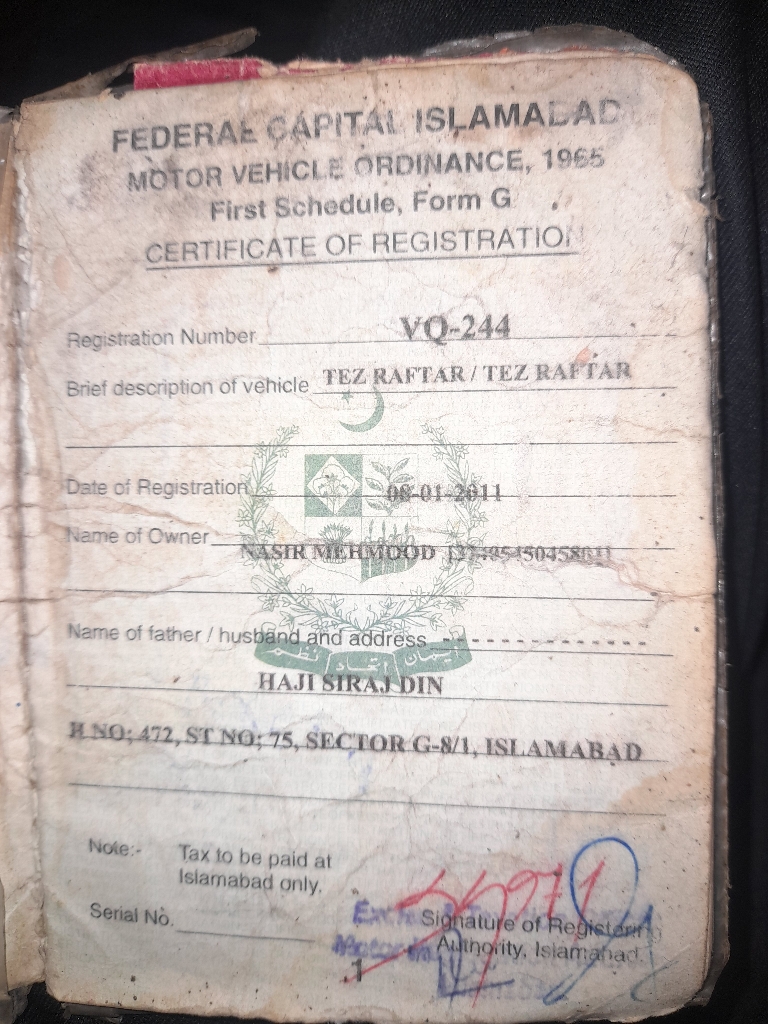 FEDERAL CAPITAL ISLAMABAD
MOTOR VEHICLE ORDINANCE, 1965
First Schedule, Form G
CERTIFICATE OF REGISTRATION
Registration Number VQ-244
Brief description of vehicle TEZ RAFTAR / TEZ RAFTAR
Date of Registration 08-01-2011
Name of Owner
NASIR MEHMOOD
Name of father / husband and address
ایمان اتحاد نظم
HAJI SIRAJ DIN
H NO; 472, ST NO; 75, SECTOR G-8/1, ISLAMABAD
Note:- Tax to be paid at
Islamabad only.
Serial No.
Signature of Registering
Authority, Islamabad.
1